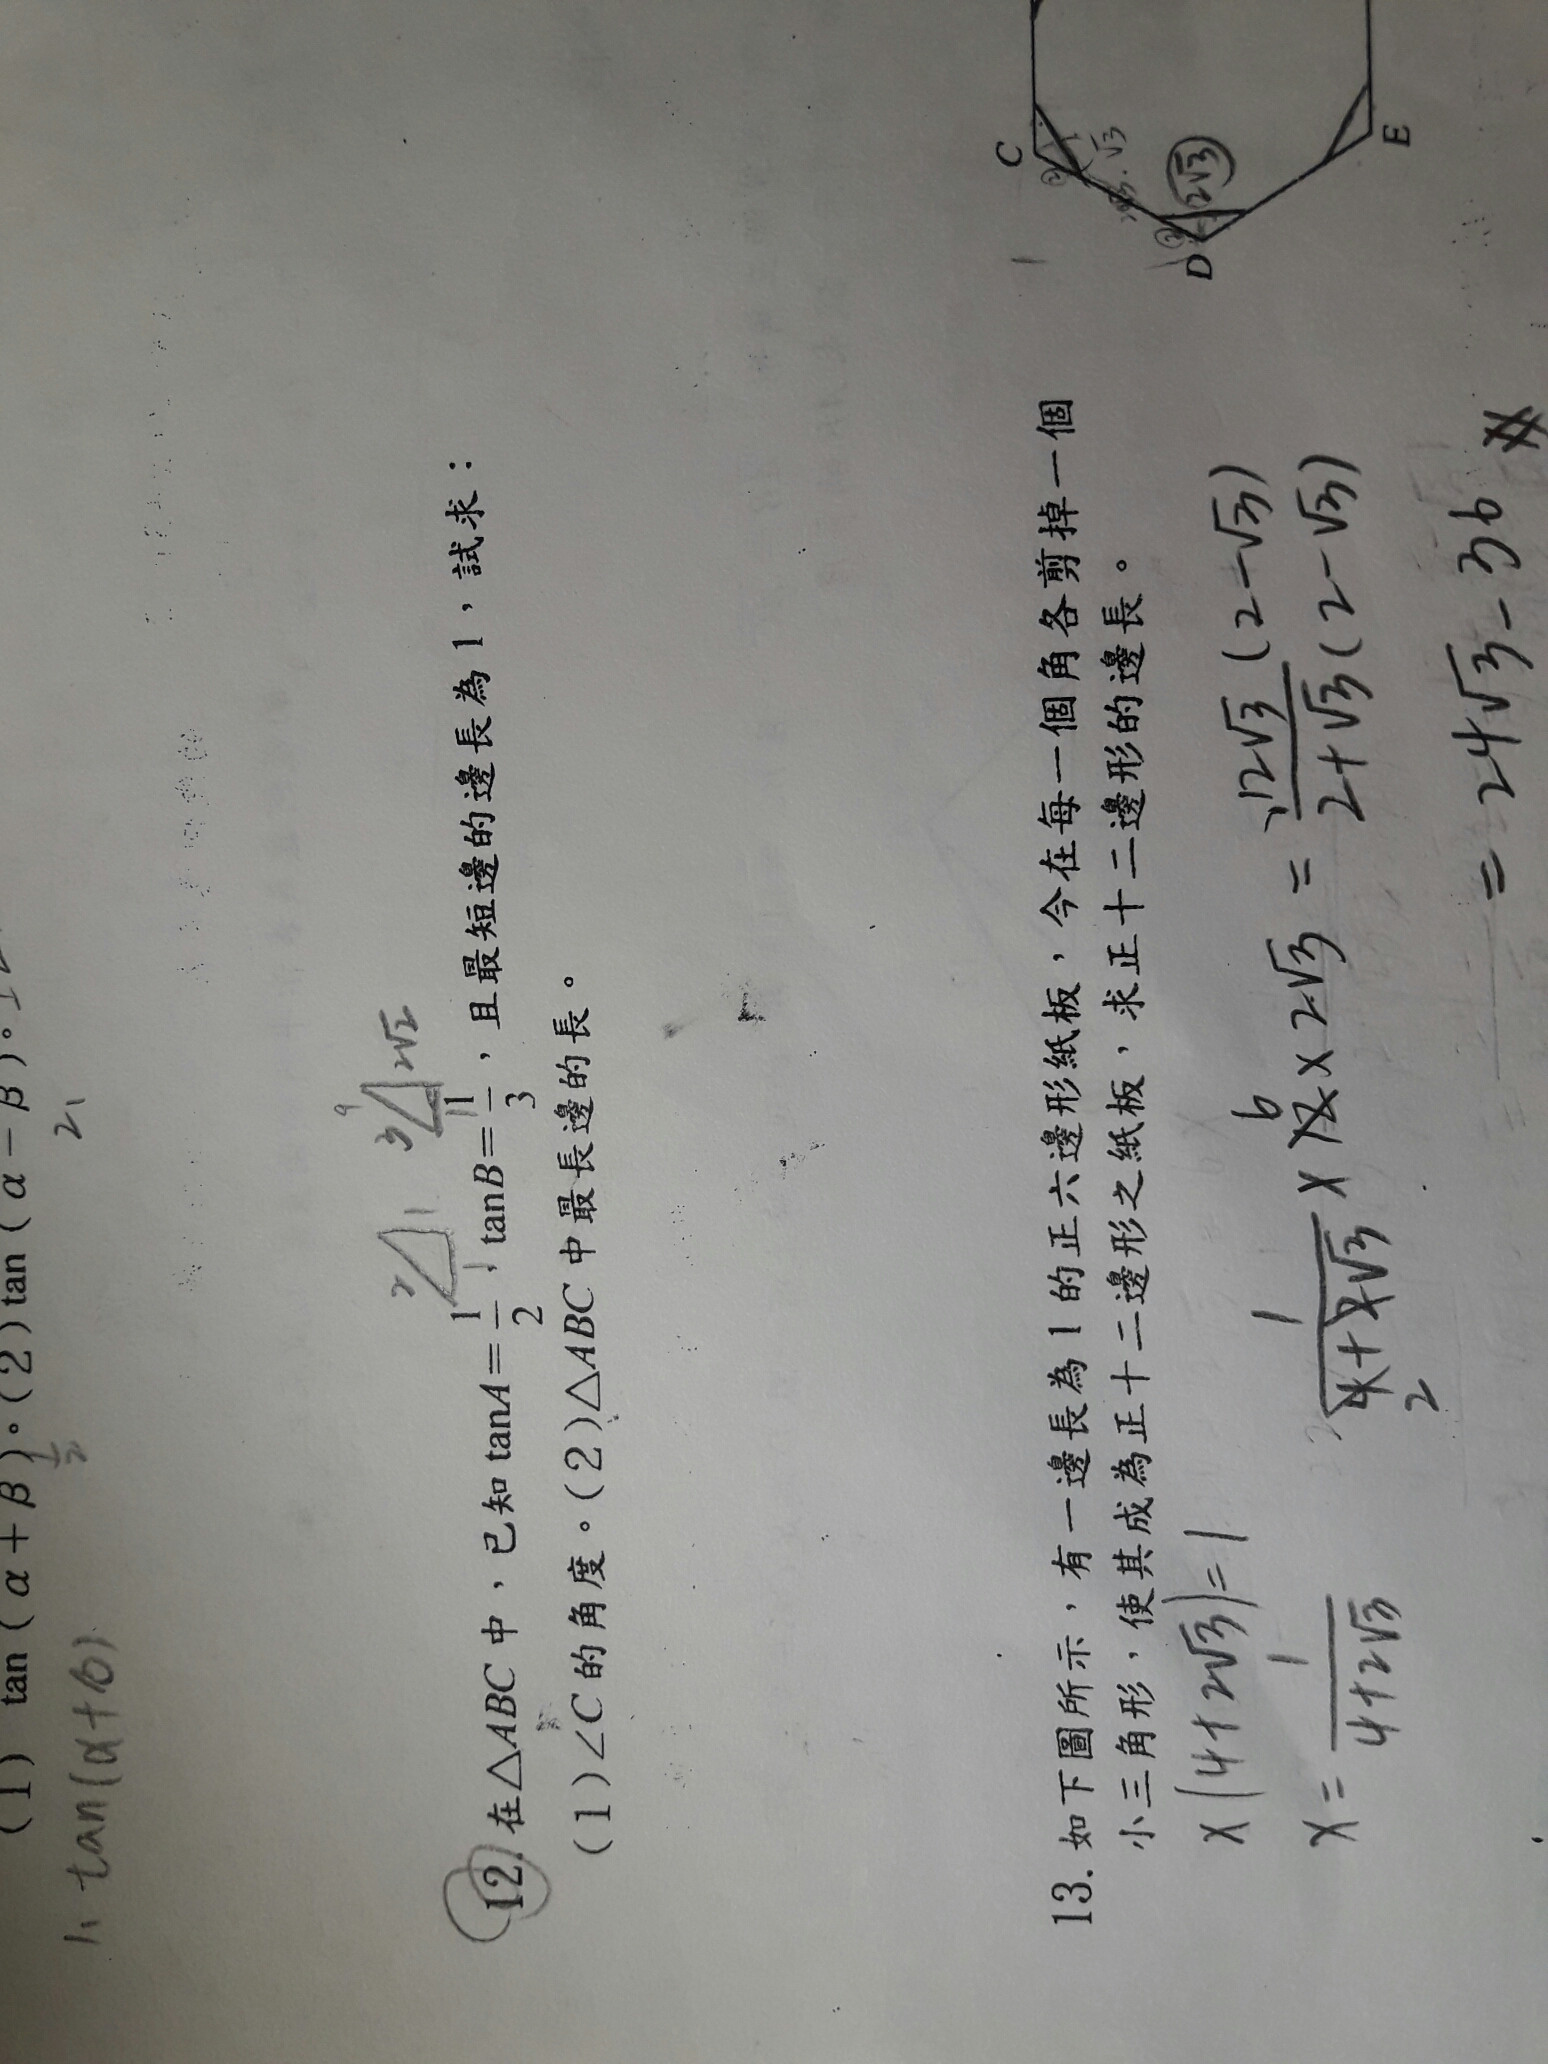 (1) tan(α+β)。(2)tan(α-β)。
1、tan(α+β)
1/2
2、
2 1
3 2√2
12.在△ABC中，已知tanA=1/2，tanB=1/3，且最短邊的邊長為1，試求：
(1)∠C的角度。(2)△ABC中最長邊的長。
13.如下圖所示，有一邊長為1的正六邊形紙板，今在每一個角各剪掉一個
小三角形，使其成為正十二邊形之紙板，求正十二邊形的邊長。
C
D
E
2√3
x(4+2√3)=1
x=1/(4+2√3)
1/(4+2√3)×12×2√3=12√3(2-√3)/2+√3(2-√3)
6
2
=24√3-36